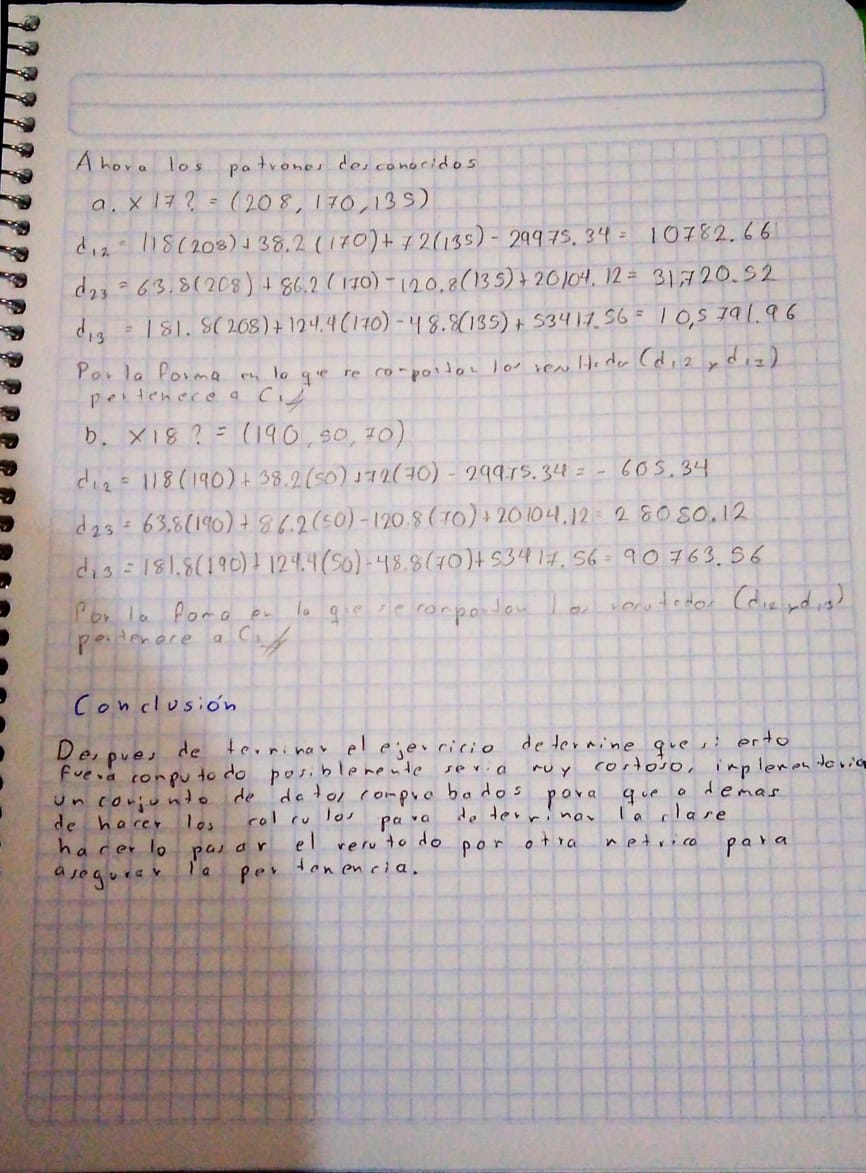 Ahora los patrones desconocidos
a. X17? = (208, 170, 135)
d12 = 118(208)+38.2(170)+72(135)-29975.34 = 10782.66
d23 = 63.8(208)+86.2(170)-120.8(135)+20104.12 = 31,720.52
d13 = 181.8(208)+124.4(170)-48.8(135)+53417.56 = 10,5791.96
Por la forma en la que se comportan los resultados (d12 y d13)
pertenece a C1
b. X18? = (190, 50, 70)
d12 = 118(190)+38.2(50)+72(70)-29975.34 = -605.34
d23 = 63.8(190)+86.2(50)-120.8(70)+20104.12 = 28050.12
d13 = 181.8(190)+124.4(50)-48.8(70)+53417.56 = 90763.56
Por la forma en la que se comportan los resultados (d12 y d13)
pertenece a C1
Conclusión
Despues de terminar el ejercicio determine que si esto
fuera computado posiblemente seria muy costoso, implementaria
un conjunto de datos comprobados para que a demas
de hacer los calculos para determinar la clase
hacerlo pasar el resutado por otra metrica para
asegurar la pertenencia.